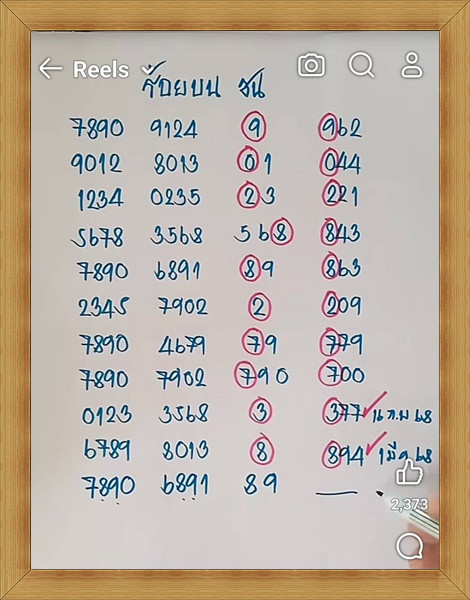 Reels
ร้อยบน ชน
7890 9124 9 962
9012 8013 01 044
1234 0235 23 221
5678 3568 568 843
7890 6891 89 863
2345 7902 2 209
7890 4679 79 779
7890 7902 790 700
0123 3568 3 377 16 ก.พ 68
6789 8013 8 894 1 มี.ค 68
7890 6891 89
2,373